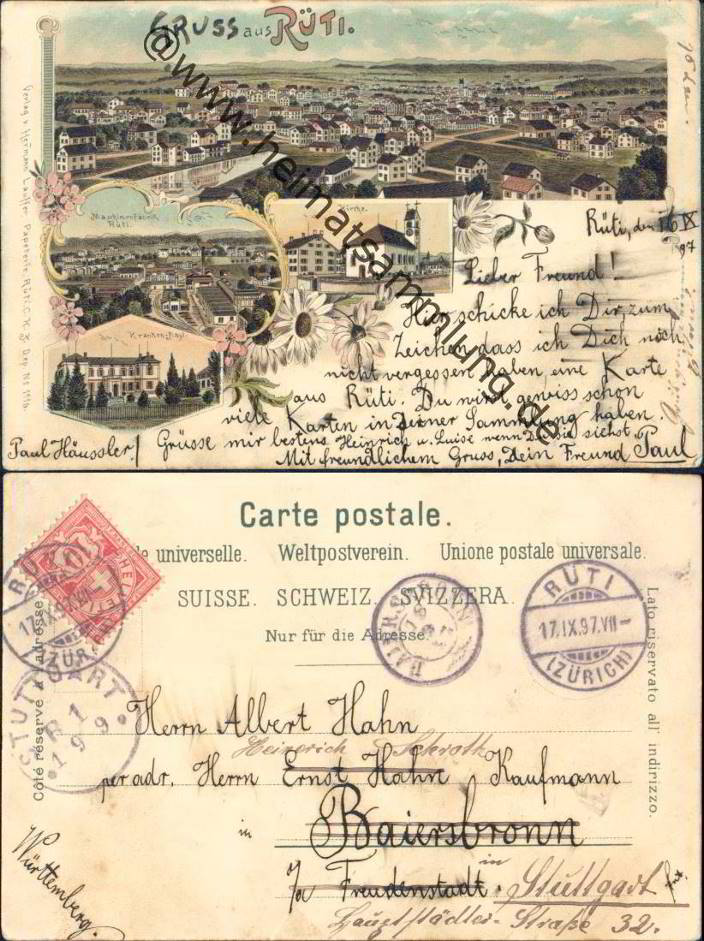 GRUSS aus RÜTI.
@www.heimatsammlung.de
Maschinenfabrik
Rüti.
Kirche.
Krankenasyl.
Rüti, den 16 IX
97
Lieber Freund!
Hier schicke ich Dir zum
Zeichen dass ich Dich noch
nicht vergessen haben eine Karte
aus Rüti. Du wirst gewiss schon
viele Karten in Deiner Sammlung haben.
Grüsse mir bestens Heinrich u. Luise wenn Du sie siehst.
Mit freundlichem Gruss, Dein Freund Paul
Paul Häussler.
Verlag v. Hermann Lauffer, Papeterie, Rüti.
Carte postale.
universelle. Weltpostverein. Unione postale universale.
SUISSE. SCHWEIZ. SVIZZERA.
Nur für die Adresse.
Côté réservé à l'adresse.
Lato riservato all' indirizzo.
HELVETIA
10
RÜTI
17.IX.97.VII
(ZÜRICH)
BAIERSBRONN
RÜTI
17.IX.97.VII
(ZÜRICH)
STUTTGART
Herrn Albert Hahn
Heinrich Schroth
per adr. Herrn Ernst Hahn Kaufmann
in Baiersbronn
Freudenstadt. in Stuttgart
Hauptstädter-Straße 32.
Württemberg.